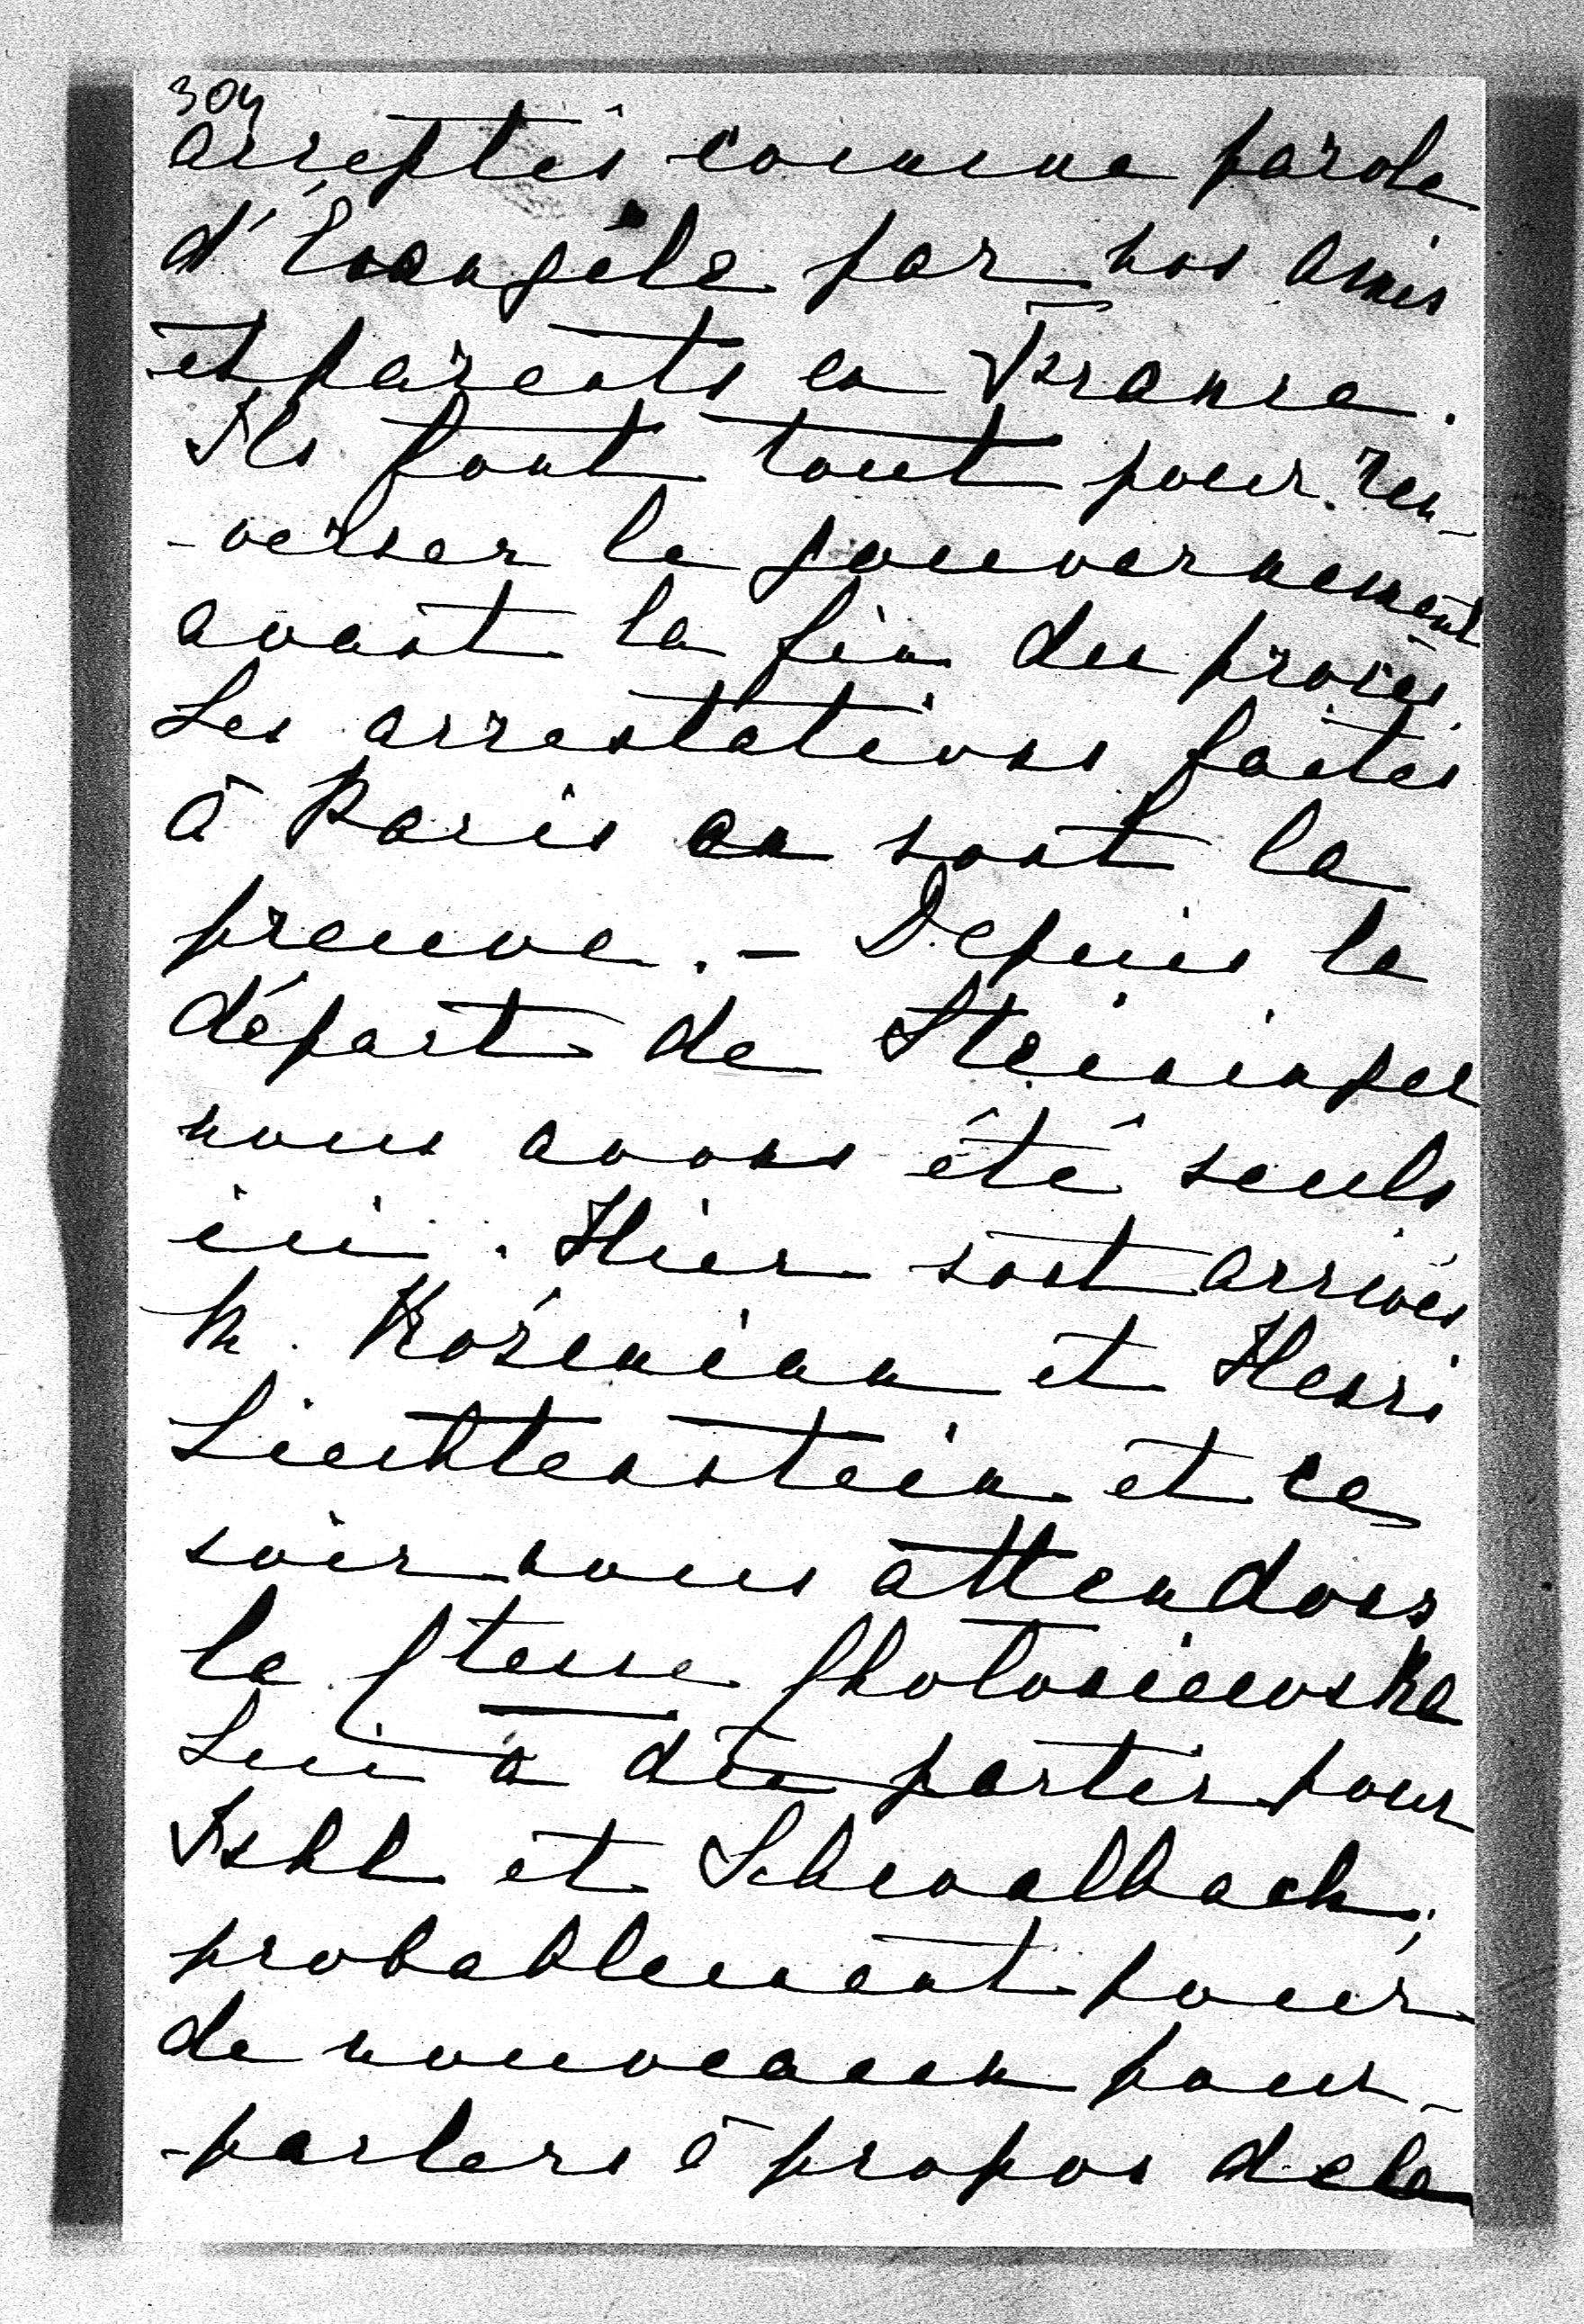 304
acceptés comme parole
d'Évangile par nos amis
et parents en France.
Ils font tout pour ren-
-verser le gouvernement
avant la fin du procès.
Les arrestations faites
à Paris en sont la
preuve. - Depuis le
départ de Steininger
nous avons été seuls
ici. Hier sont arrivés
M. Kosémian et Henri
Liechtenstein et ce
soir nous attendons
la Ctesse
Lui a dû partir pour
Ischl et Schwalbach,
probablement pour
de nouveaux pour-
-parlers à propos de la